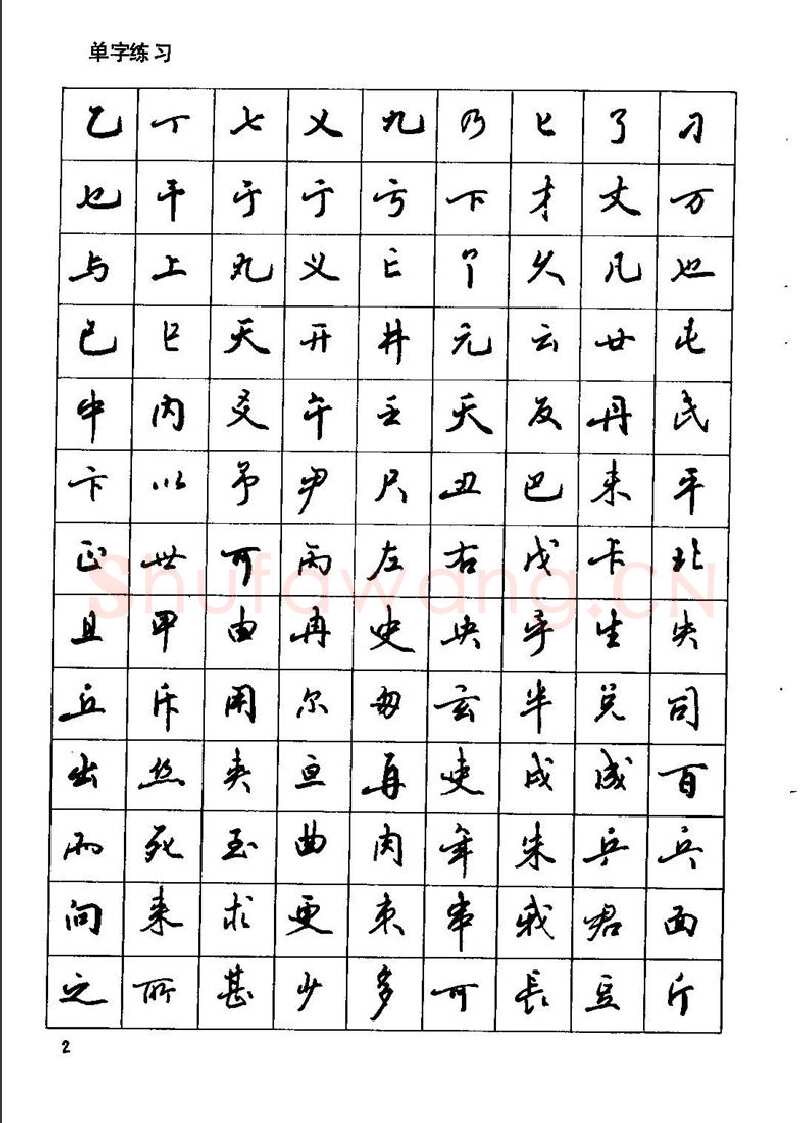 单字练习
乙丁七乂九乃匕了刁
七干于于亏下才丈万
与上丸义亡卩久凡也
已巳天开井元云廿屯
中内爻午壬夭反丹氏
卞以予尹尺丑巴未平
正世可丙左右戊卡北
且甲由冉史央乎生失
丘斥用尔母玄半兑司
出丝夹亘再吏戌成百
而死至曲肉年朱乒兵
向来求更束串我君面
之所甚少多可長豆斤
Shufawang.CN
2